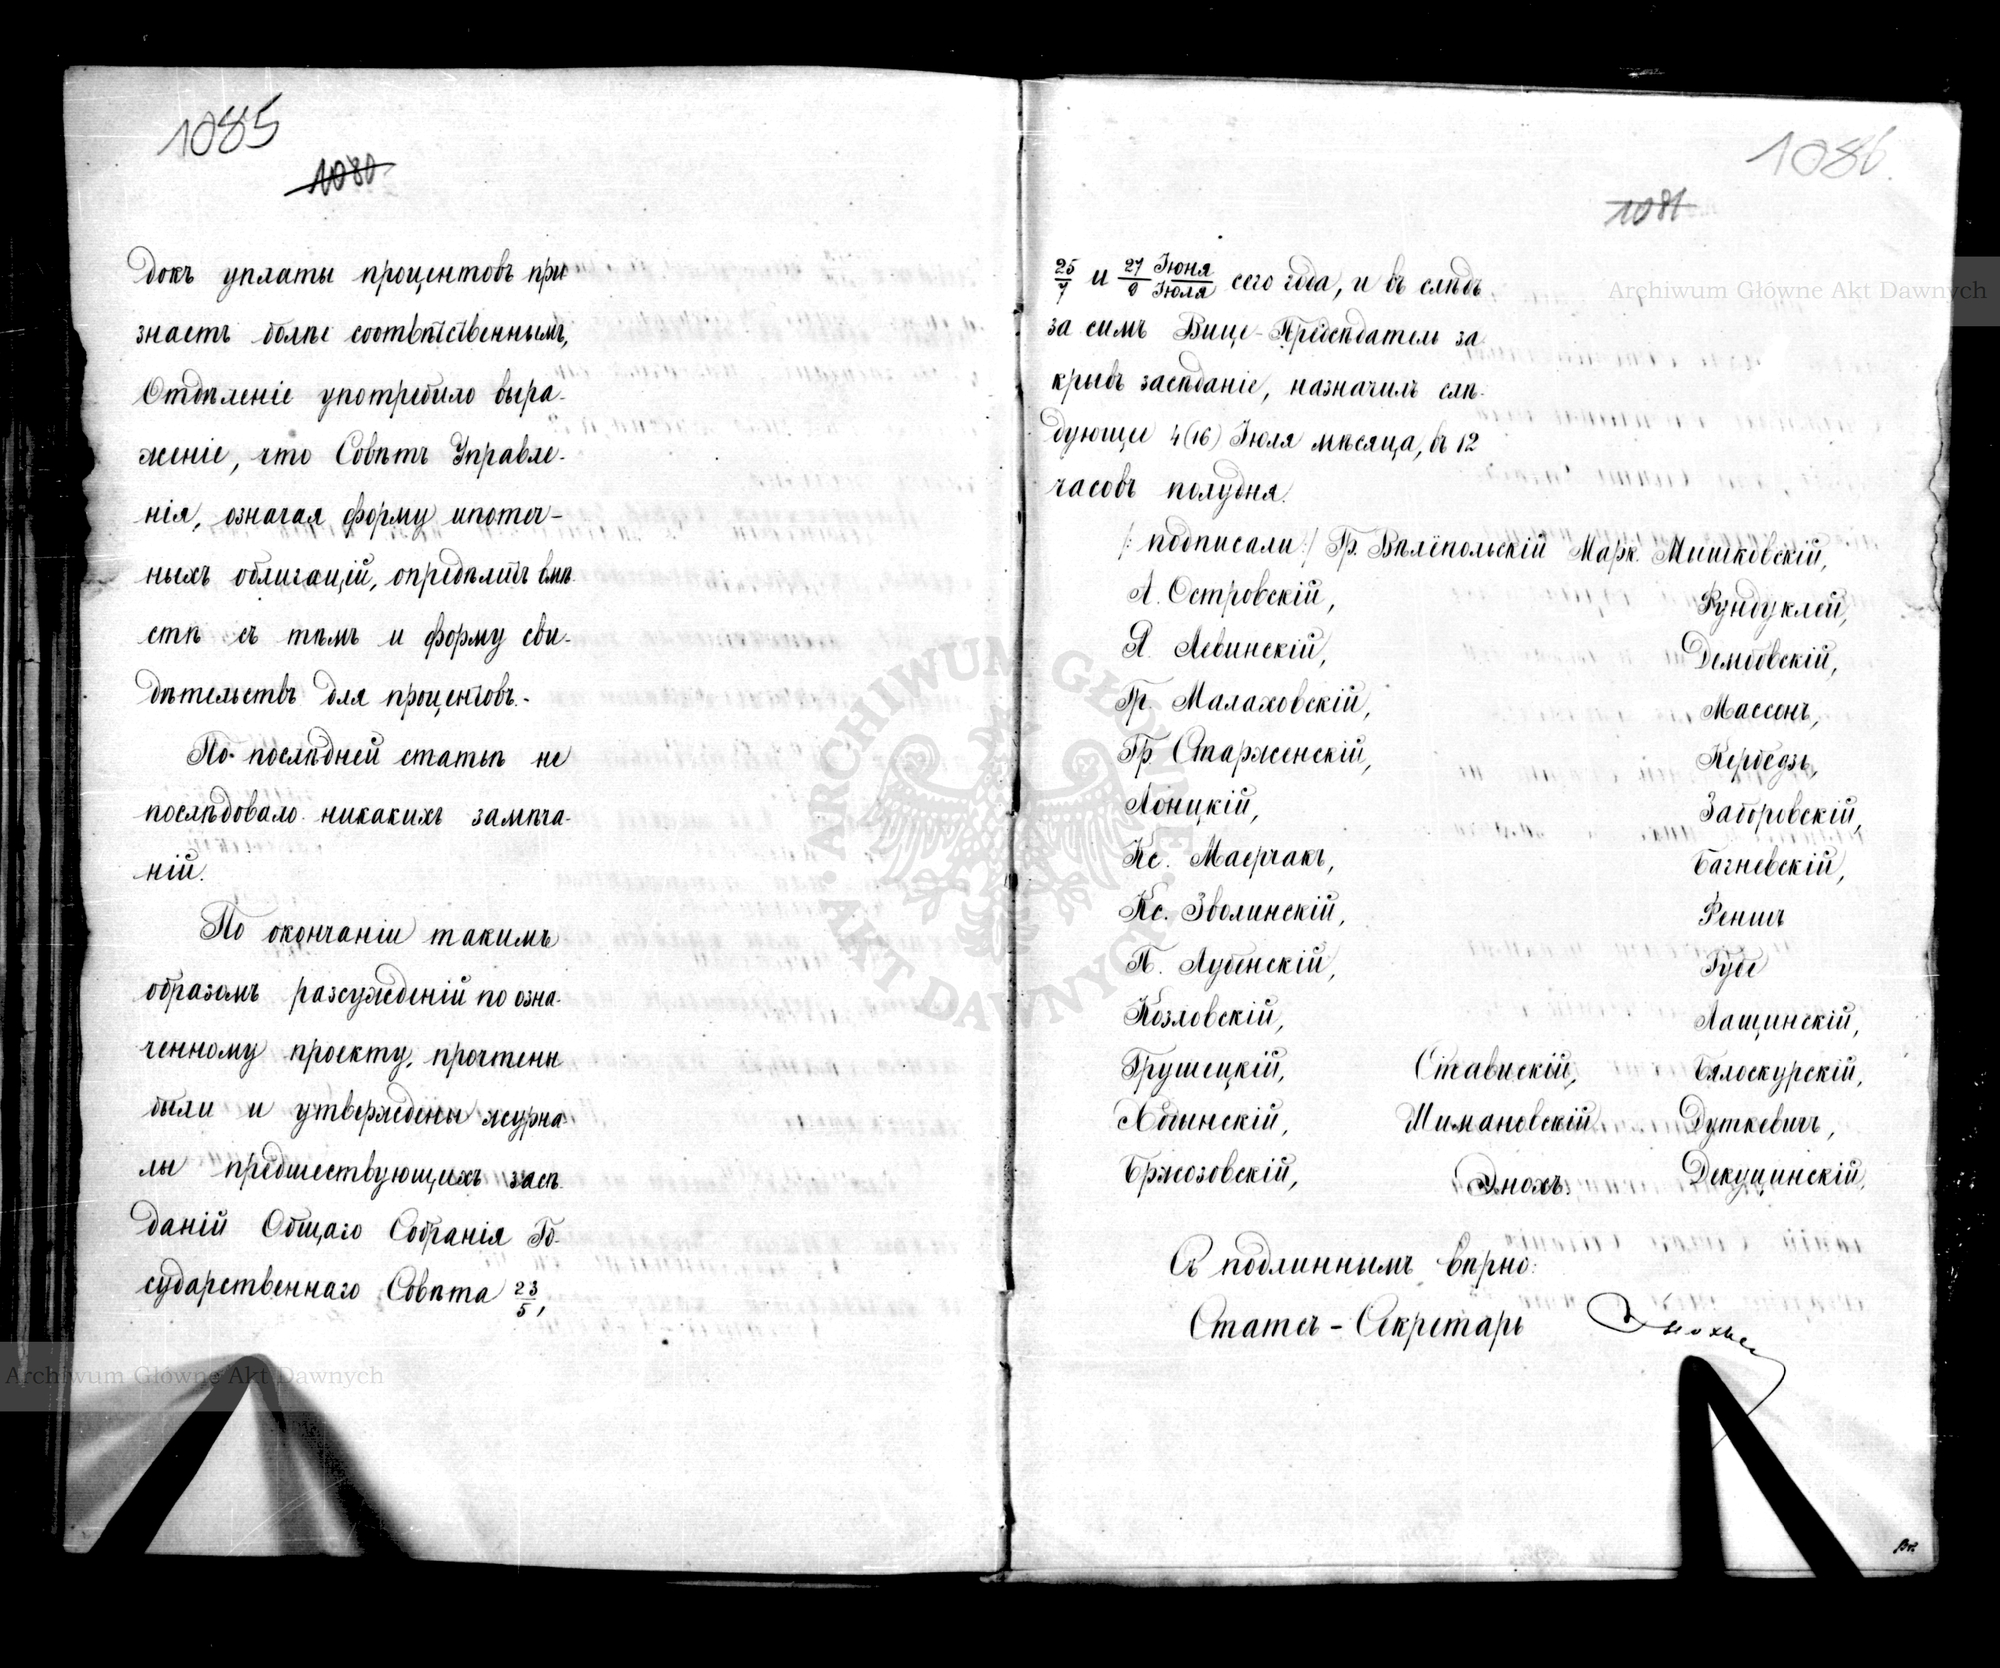 1085
1080
докъ уплаты процентовъ при
знаетъ болѣе соотвѣтственнымъ,
Отдѣленіе употребило выра-
женіе, что Совѣтъ Управле-
нія, означая форму ипотеч-
ныхъ облигацій, опредѣлитъ вмѣ
стѣ съ тѣмъ и форму сви-
дѣтельствъ для процентовъ.-
По послѣдней статьѣ не
послѣдовало никакихъ замѣча-
ній.
По окончаніи такимъ
образомъ разсужденій по озна-
ченному проекту, прочтены
были и утверждены журна
лы предшествующихъ засѣ-
даній Общаго Собранія Го-
сударственнаго Совѣта 23/5,
1086.
1081
25/7 и 27/9 Іюня/Іюля сего года, и въ слѣдъ
за симъ Вице-Предсѣдатель за
крывъ засѣданіе, назначилъ слѣ-
дующее 4(16) Іюля мѣсяца, въ 12
часовъ полудня.
/: подписали:/ Гр. Вѣлёпольскій Марк. Мышковскій,
А. Островскій, Рундуклей,
Я. Левинскій, Дембовскій,
Гр. Малаховскій, Массонъ,
Гр. Старженскій, Кербедзъ,
Лоницкій, Заборовскій,
Кс. Маерчакъ, Багневскій,
Кс. Зволинскій, Реншъ
П. Лубенскій, Губе
Козловскій, Лащинскій,
Грушецкій, Ставискій, Бялоскурскій,
Любынскій, Шимановскій Дуткевичъ,
Бржозовскій, Энохъ. Декуцинскій,
Съ подлиннымъ вѣрно:
Статсъ-Секретарь Энохъ
Archiwum Główne Akt Dawnych
ARCHIWUM GŁÓWNE AKT DAWNYCH
Archiwum Główne Akt Dawnych